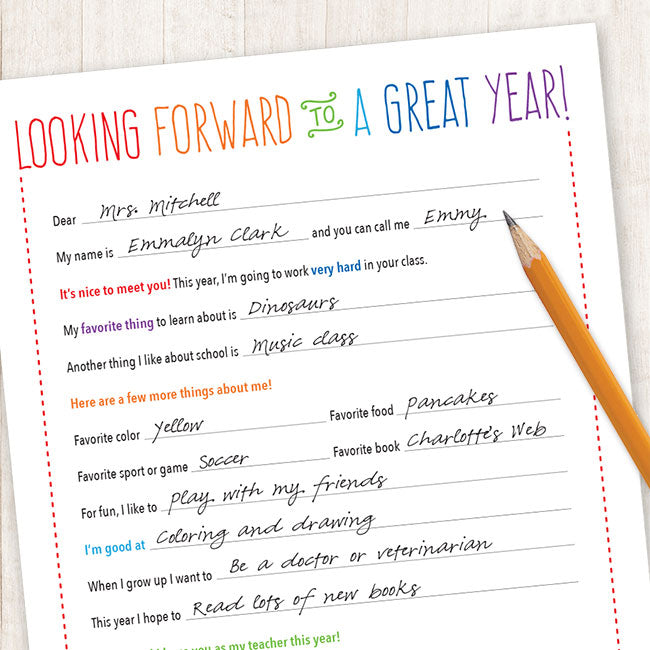 LOOKING FORWARD TO A GREAT YEAR!
Dear Mrs. Mitchell
My name is Emmalyn Clark and you can call me Emmy.
It's nice to meet you! This year, I'm going to work very hard in your class.
My favorite thing to learn about is Dinosaurs
Another thing I like about school is Music class
Here are a few more things about me!
Favorite color Yellow Favorite food Pancakes
Favorite sport or game Soccer Favorite book Charlotte's Web
For fun, I like to Play with my friends
I'm good at Coloring and drawing
When I grow up I want to Be a doctor or veterinarian
This year I hope to Read lots of new books
you as my teacher this year!